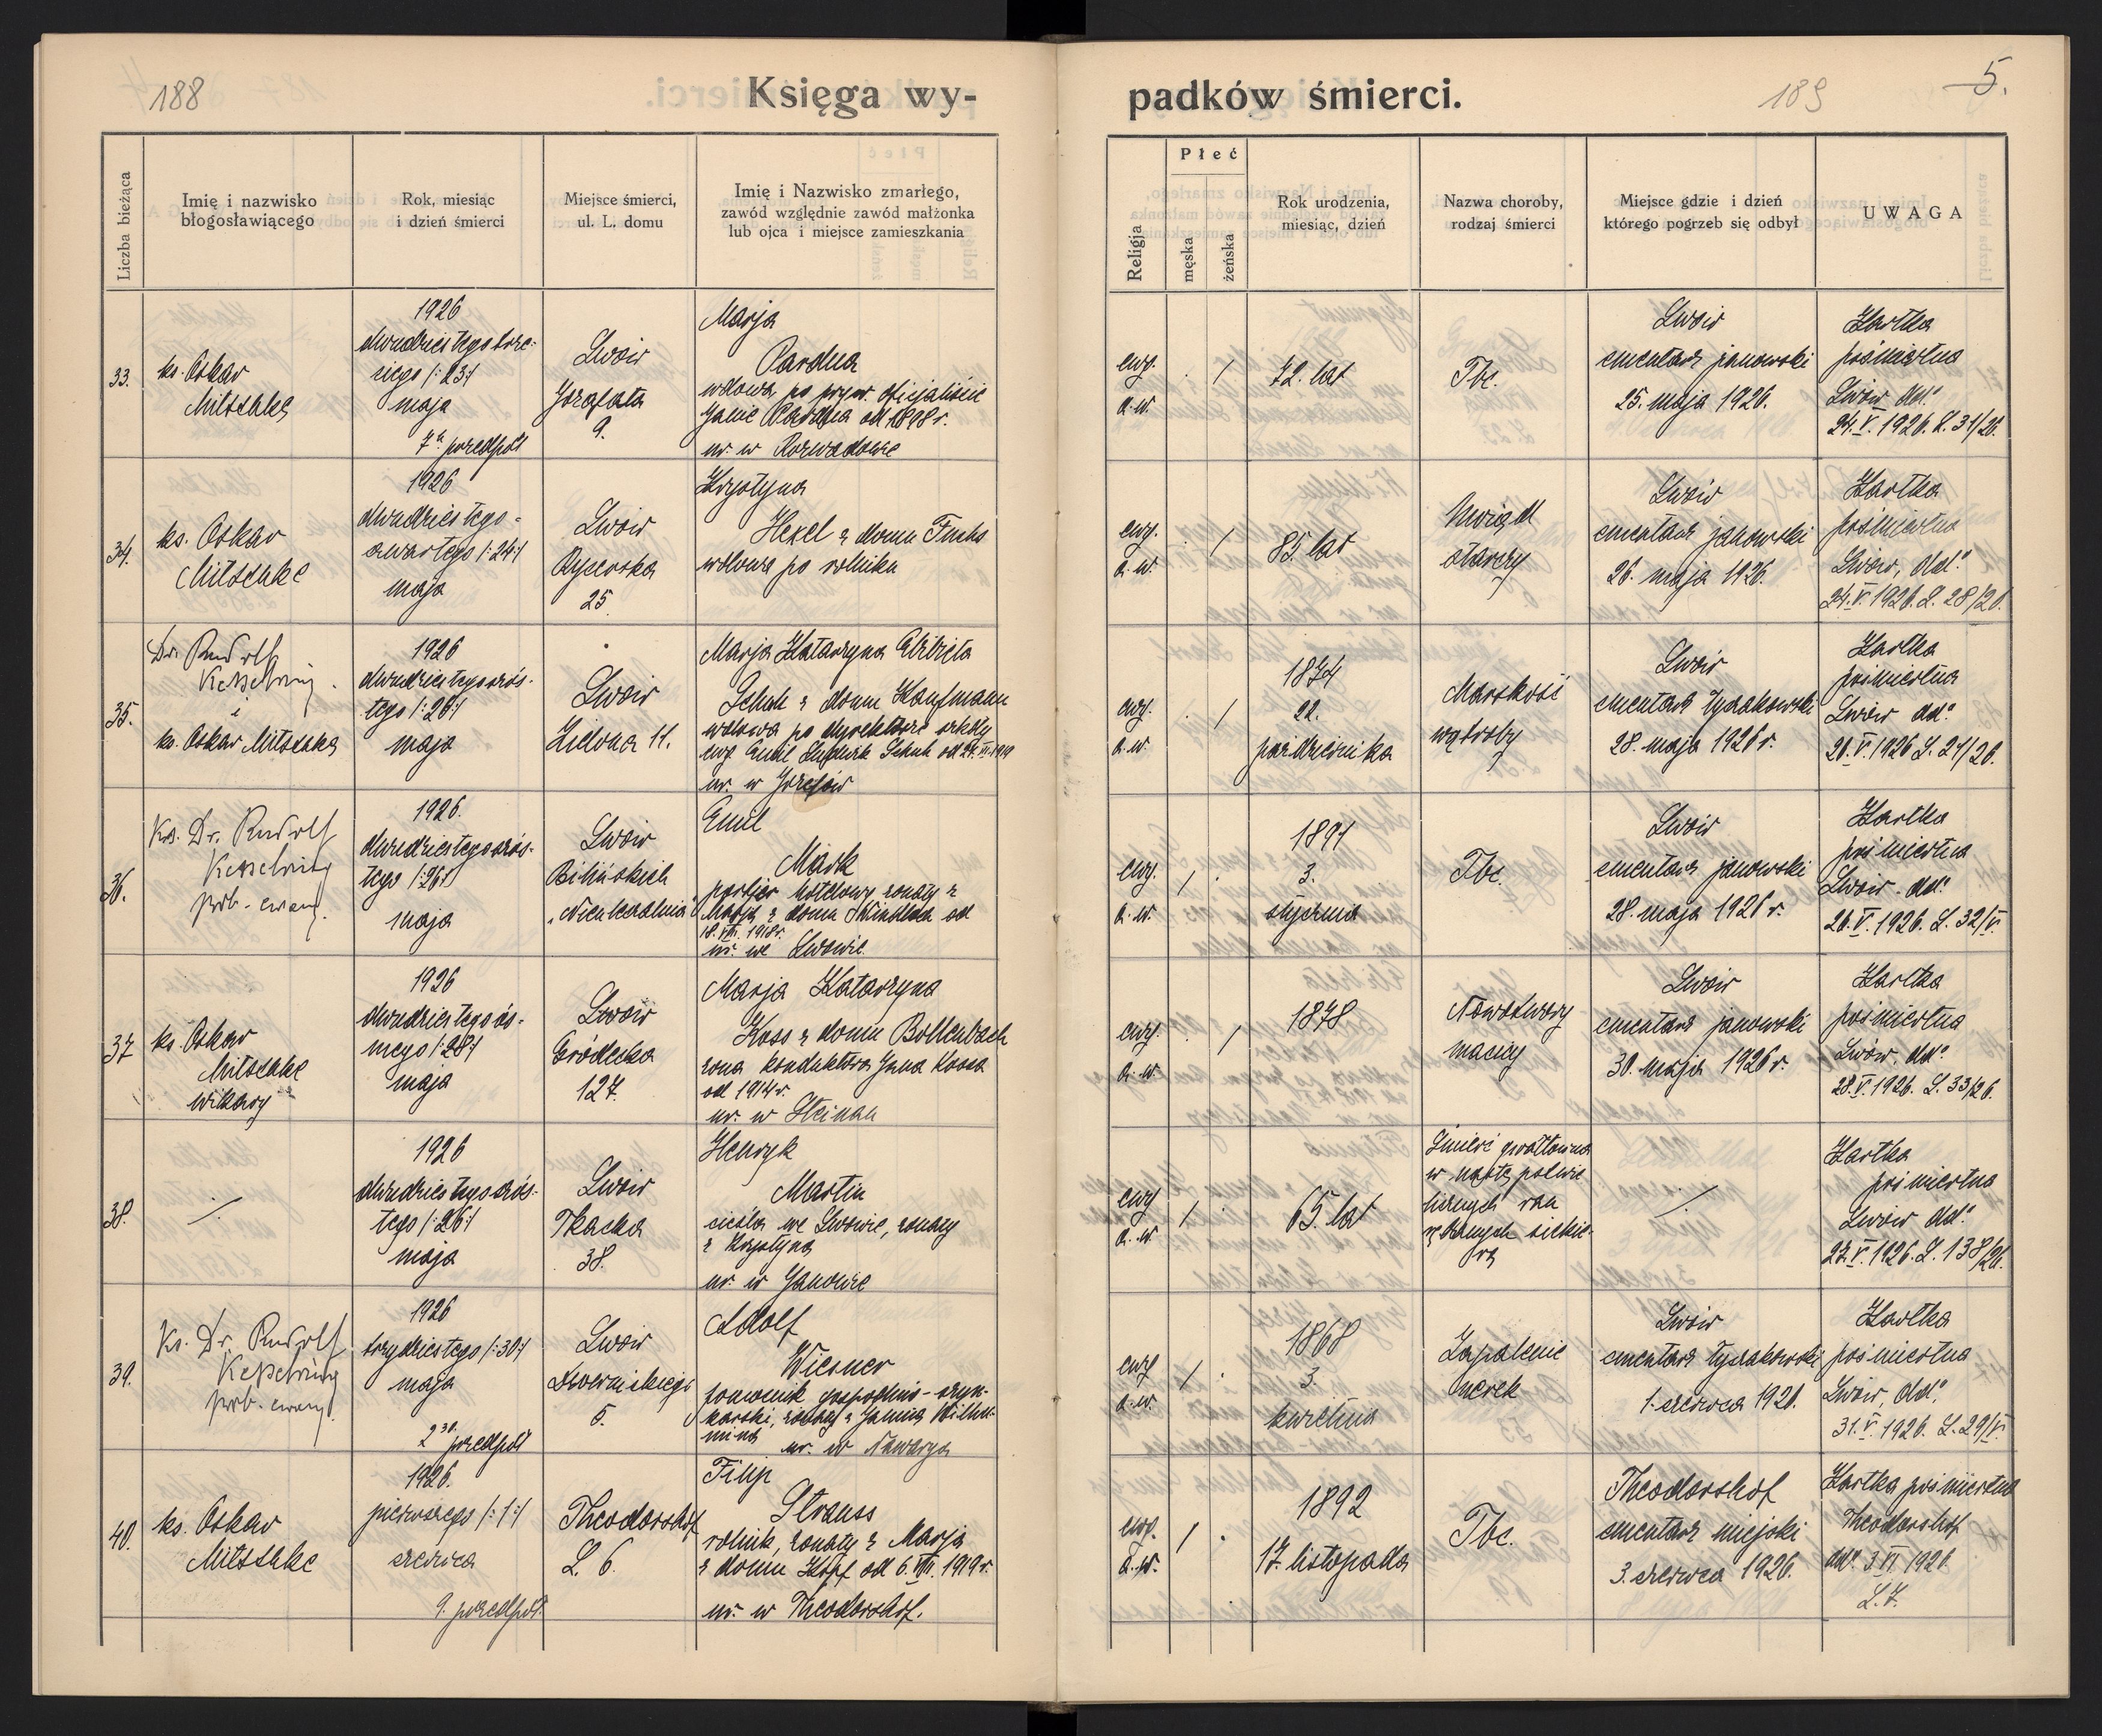 188
Księga wy-
padków śmierci.
189
5.
Liczba bieżąca
Imię i nazwisko
błogosławiącego
Rok, miesiąc
i dzień śmierci
Miejsce śmierci,
ul. L. domu
Imię i Nazwisko zmarłego,
zawód względnie zawód małżonka
lub ojca i miejsce zamieszkania
Religja
Płeć
męska
żeńska
Rok urodzenia,
miesiąc, dzień
Nazwa choroby,
rodzaj śmierci
Miejsce gdzie i dzień
którego pogrzeb się odbył
UWAGA
33.
ks. Oskar
Mitschke
1926
dwudziestego trze-
ciego /:23:/
maja
7ª przedpoł
Lwów
Jozafata
9.
Marja
Pardua
wdowa po pryw. oficjaliście
Janie od 1898 r.
ur. w Rozwadowie
ewg.
a. w.
. /
72. lat
Tbc.
Lwów
cmentarz janowski
25. maja 1926.
Kartka
pośmiertna
Lwów dd:
24. V. 1926. L. 31/26.
34.
ks. Oskar
Mitschke
1926
dwudziestego-
czwartego /:24:/
maja
Lwów
25.
Krystyna
Hexel z domu Fuchs
wdowa po rolniku
ewg.
a. w.
. /
85 lat
Uwiąd
starczy
Lwów
cmentarz janowski
26. maja 1926.
Kartka
pośmiertna
Lwów, dd:
24. V. 1926. L. 28/26.
35.
Dr. Rudolf
Kesselring
i
ks. Oskar Mitschke
1926
dwudziestego szós-
tego /:26:/
maja
Lwów
Zielona 11.
Marja Katarzyna Elżbieta
Schuh z domu Kaufmann
wdowa po dyrektorze szkoły
ewg. Emil Schuh od
ur. w Józefów
ewg.
a. w.
. /
1874
22.
października
Marskość
wątroby
Lwów
cmentarz łyczakowski
28. maja 1926 r.
Kartka
pośmiertna
Lwów dd:
26. V. 1926 L. 24/26.
36.
Ks. Dr. Rudolf
Kesselring
prob. ewang.
1926.
dwudziestego szós-
tego /:26:/
maja
Lwów
Bilińskich
"Nieuleczalnia"
Emil
Mark
portjer hotelowy żonaty z
Marją z domu od
18. VIII. 1918 r.
ur. we Lwowie.
ewg.
a. w.
/ .
1891
3.
stycznia
Tbc.
Lwów
cmentarz janowski
28. maja 1926 r.
Kartka
pośmiertna
Lwów. dd:
26. V. 1926. L. 32/V.
37
ks. Oskar
Mitschke
wikary
1926
dwudziestego ós-
mego /:28:/
maja
Lwów
Gródecka
127.
Marja Katarzyna
Koss z domu Bollenbach
żona konduktora Jana Kossa
od 1914 r.
ur. w Steinau
ewg.
a. w.
. /
1878
Nowotwory
macicy
Lwów
cmentarz janowski
30. maja 1926 r.
Kartka
pośmiertna
Lwów, dd:
28. V. 1926. L. 33/26.
38.
/
1926
dwudziestego szós-
tego /:26:/
maja
Lwów
Tkacka
38.
Henryk
Martin
cieśla we Lwowie, żonaty
z Krystyną
ur. w Janowie
ewg
a. w.
/ .
65 lat
Śmierć gwałtowna
w następstwie
licznych ran
rąbanych siekie-
rą
/
Kartka
pośmiertna
Lwów dd:
27. V. 1926. L. 138/26.
39.
Ks. Dr. Rudolf
Kesselring
prob. ewang.
1926
trzydziestego /:30:/
maja
2³⁰ przedpoł
Lwów
Dwernickiego
5.
Adolf
Wiesner
pomocnik gospodnio-szyn-
karski, żonaty z Janiną Wilhel-
miną ur. w Nawarya
ewg
a. w.
/ .
1868
3.
kwietnia
Zapalenie
nerek
Lwów
cmentarz łyczakowski
1. czerwca 1926.
Kartka
pośmiertna
Lwów, dd:
31. V. 1926. L. 29/V.
40.
ks. Oskar
Mitschke
1926.
pierwszego /:1:/
czerwca
9. przedpoł.
Theodorshof
L. 6.
Filip
Strauss
rolnik, żonaty z Marją
z domu Köpf od 6. VIII. 1919 r.
ur. w Theodorshof.
ewg.
a. w.
/ .
1892
17. listopada
Tbc.
Theodorshof
cmentarz miejski
3. czerwca 1926.
Kartka pośmiertna
Theodorshof
dd: 3. VI 1926
L. 7.